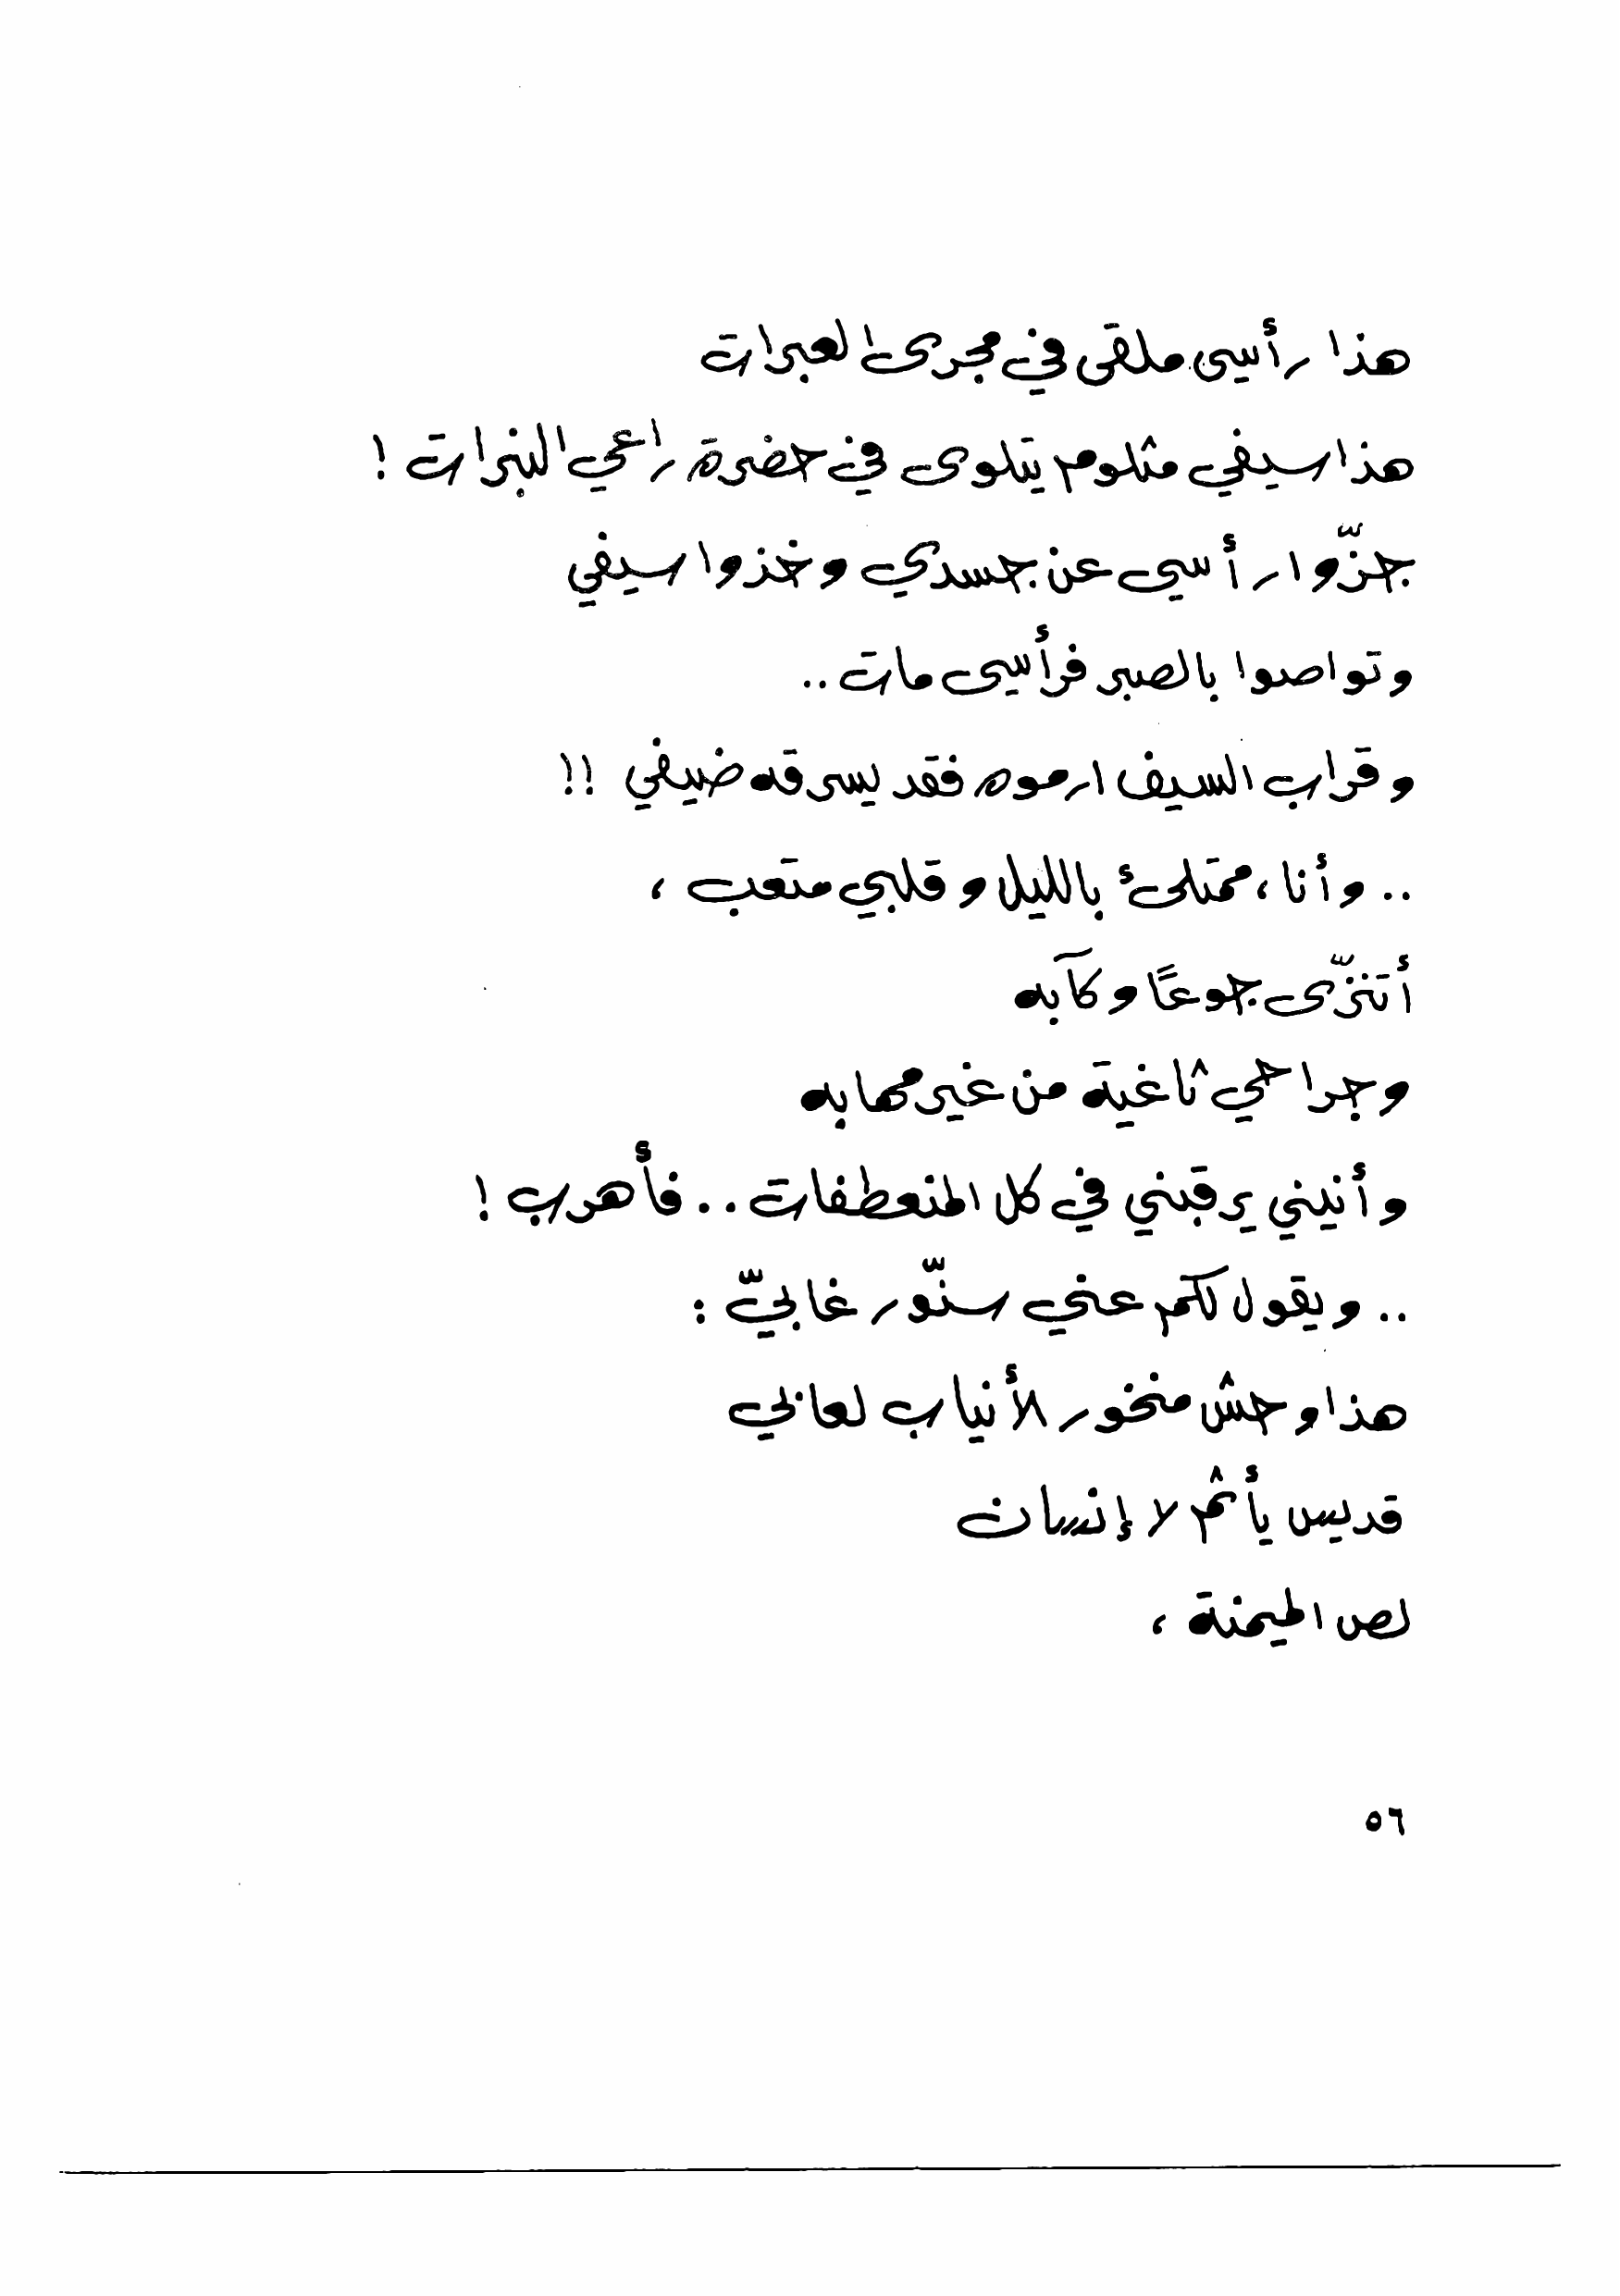 هذا رأسي ملقى في مجرى العبرات
هذا سيفي مثلوم يتلوى في حضرة راعي النبرات !
جزّوا رأسي عن جسدي وخذوا سيفي
وتواصوا بالصبر فرأسي مات ..
وقراب السيف ارموه فقد يسرقه ضيفي !!
.. وأنا ، ممتلئ بالليل وقلبي متعب ،
أتنزّى جوعًا وكآبه
وجراحي ثاغية من غير مهابه
وأنيني يرقبني في كل المنعطفات .. فأهرب !
.. ويقول لكم عني سنّور غابيّ :
هذا وحش منخور الأنياب لعابي
قديس يأثم لا إنسان
لص الميمنة ،
٥٦